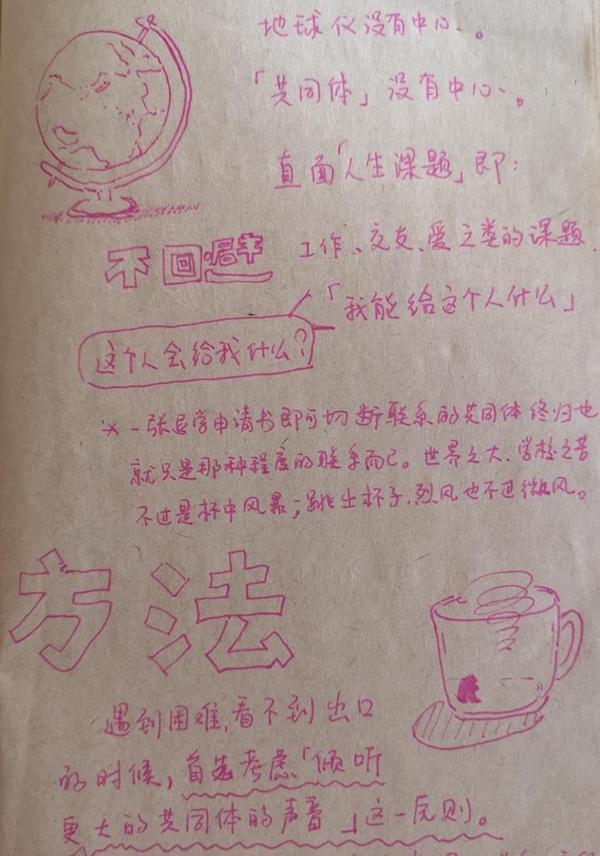 地球仪没有中心。
「共同体」没有中心。
直面「人生课题」即:
不回避 工作、交友、爱之类的课题.
「我能给这个人什么」
这个人会给我什么?
* 一张退学申请书即可切断联系的共同体终归也
就只是那种程度的联系而已。世界之大,学校之苦
不过是杯中风暴;跳出杯子,烈风也不过微风。
方法
遇到困难,看不到出口
的时候,首先考虑「倾听
更大的共同体的声音」这一原则。